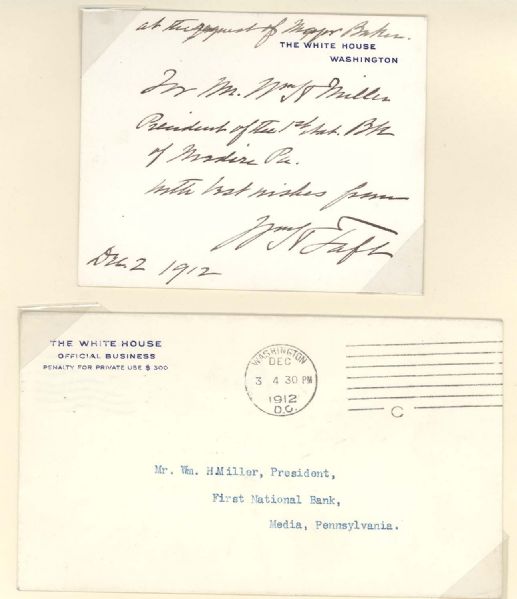 at the request of Major Baker.
THE WHITE HOUSE
WASHINGTON
For Mr. Wm H Miller
President of the 1st Nat. Bk
of Madira Pa.
with best wishes from
Wm H Taft
Dec. 2 1912
THE WHITE HOUSE
OFFICIAL BUSINESS
PENALTY FOR PRIVATE USE $ 300
WASHINGTON
DEC
3 4 30 PM
1912
D.C.
C
Mr. Wm. H.Miller, President,
First National Bank,
Media, Pennsylvania.